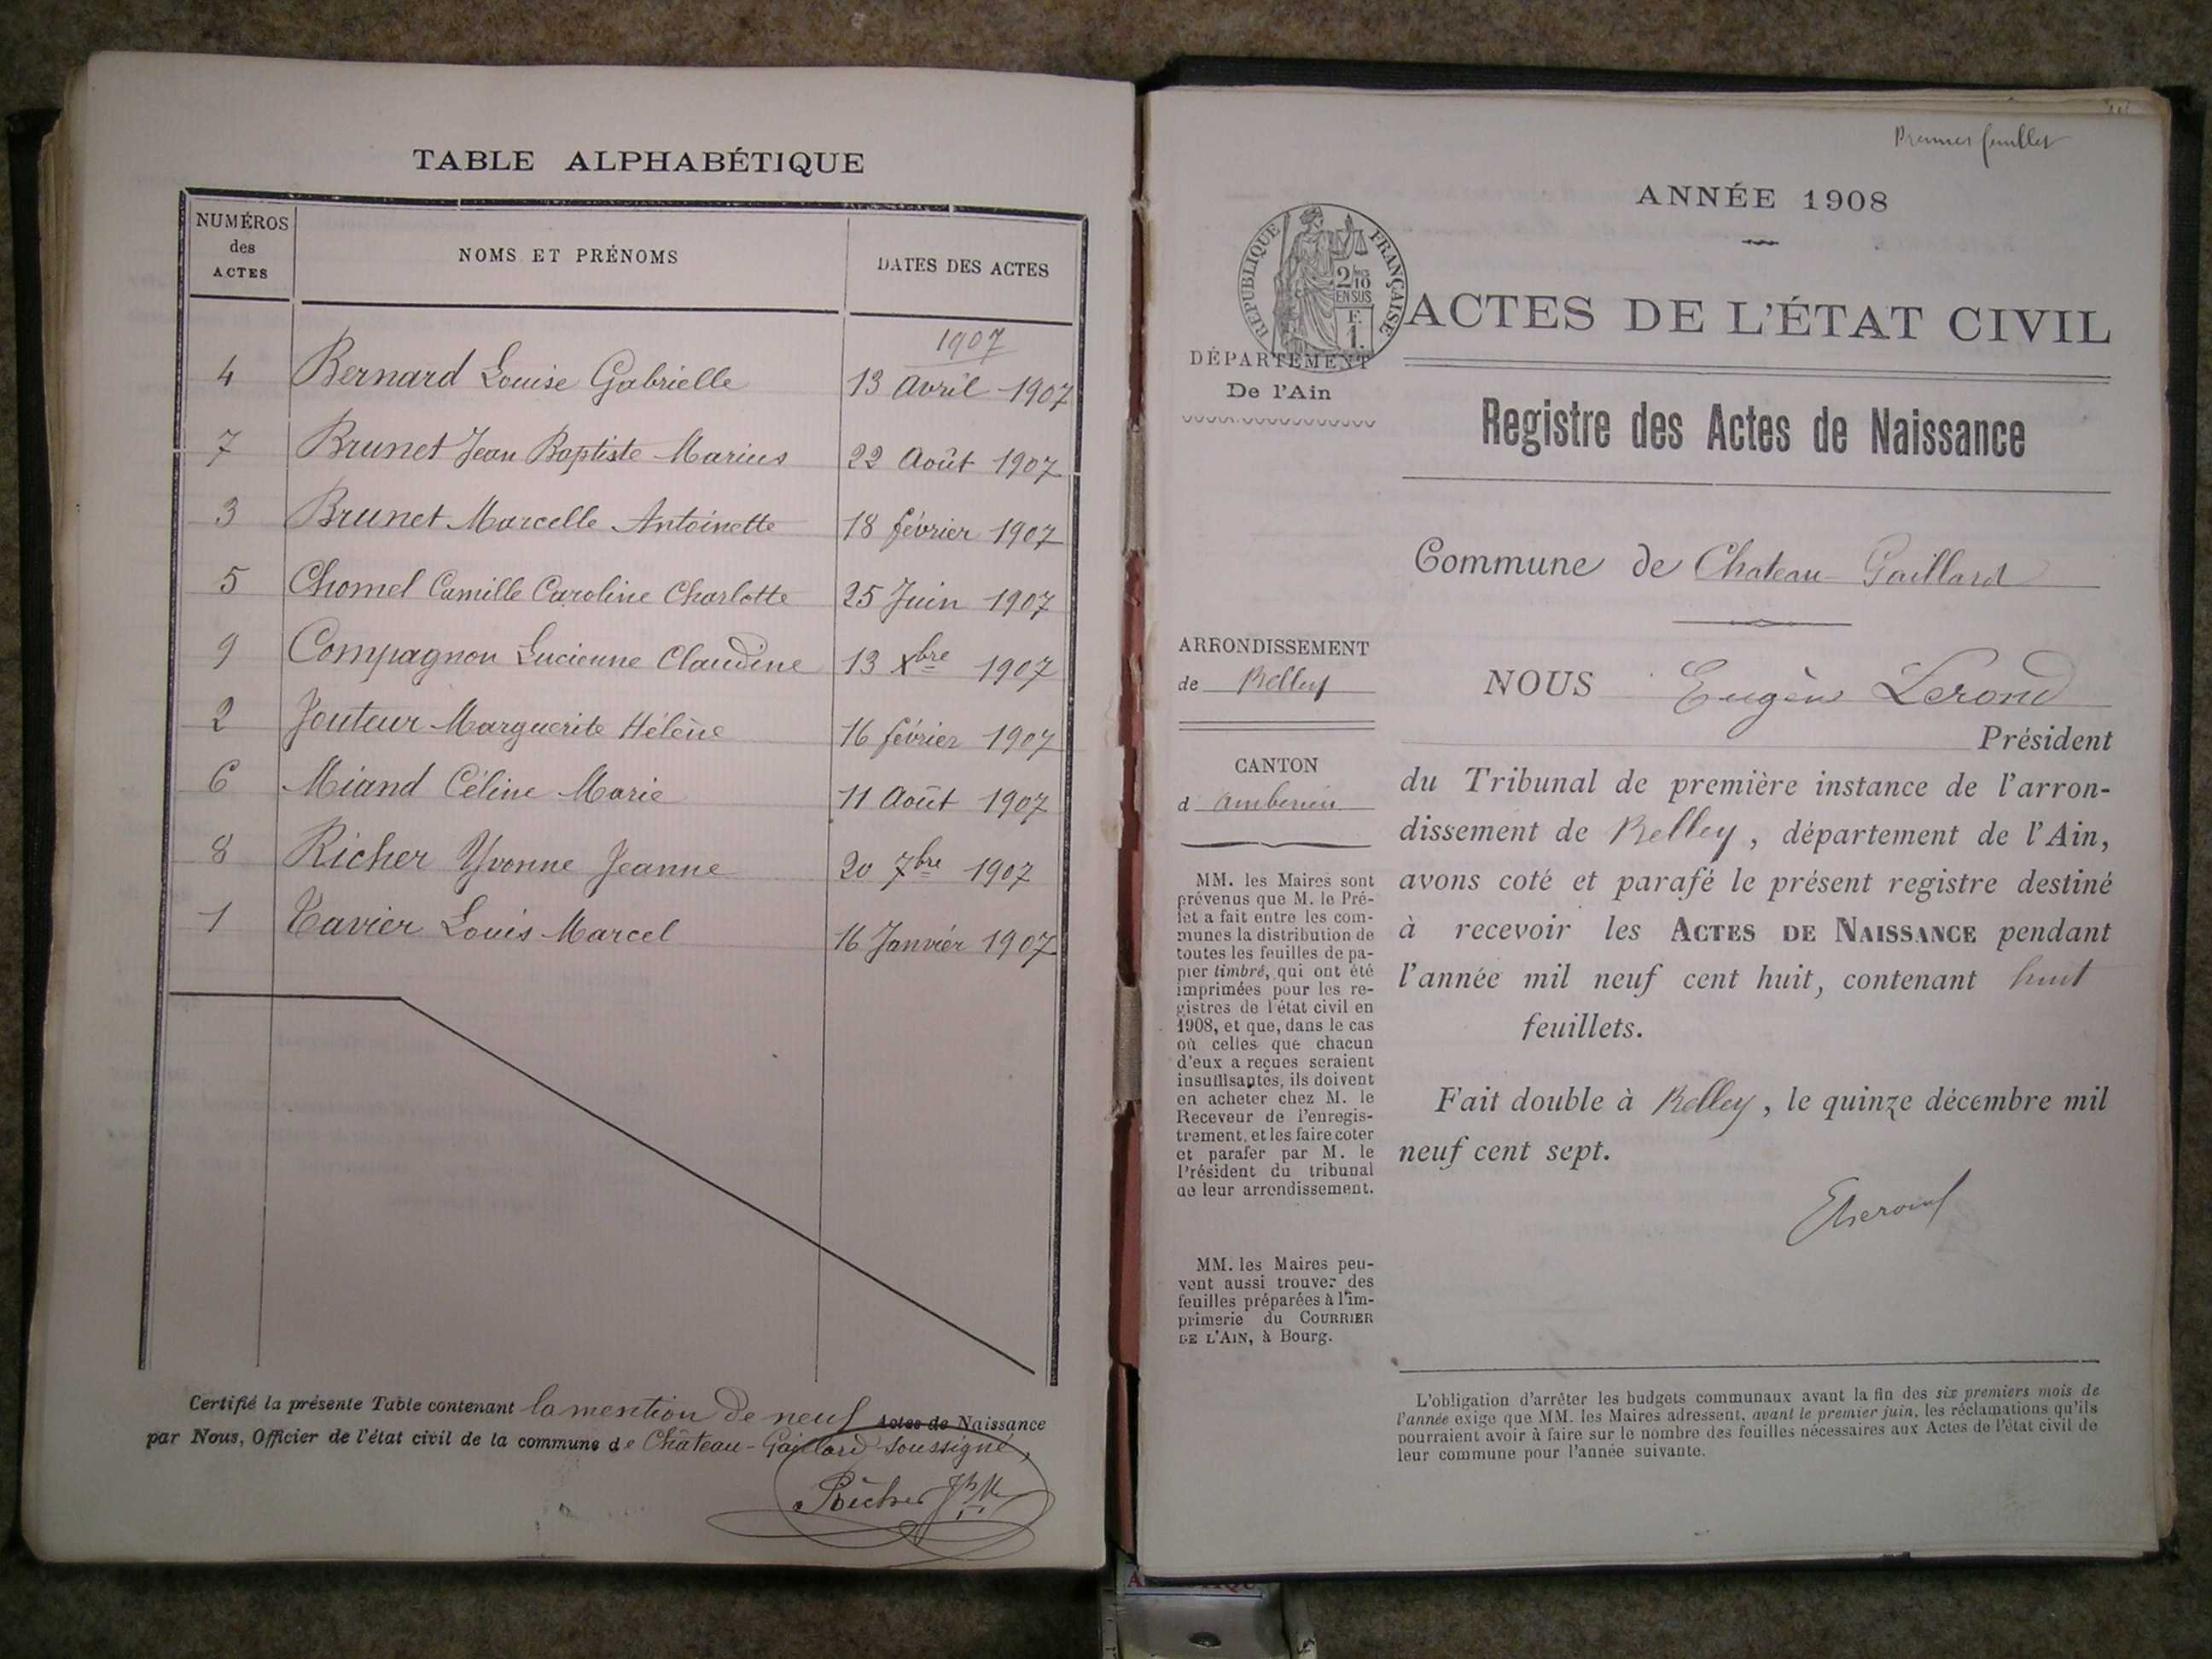 TABLE ALPHABÉTIQUE
NUMÉROS
des
ACTES
NOMS ET PRÉNOMS
DATES DES ACTES
1907
4 Bernard Louise Gabrielle 13 Avril 1907
7 Brunet Jean Baptiste Marius 22 Août 1907
3 Brunet Marcelle Antoinette 18 février 1907
5 Chomel Camille Caroline Charlotte 25 Juin 1907
9 Compagnon Lucienne Claudine 13 Xbre 1907
2 Jouteur Marguerite Hélène 16 février 1907
6 Miand Céline Marie 11 Août 1907
8 Richer Yvonne Jeanne 20 7bre 1907
1 Tavier Louis Marcel 16 Janvier 1907
Certifié la présente Table contenant la mention de neuf Actes de Naissance
par Nous, Officier de l'état civil de la commune de Château-Gaillard soussigné,
Richer
Premier feuillet
ANNÉE 1908
RÉPUBLIQUE FRANÇAISE
2/10
EN SUS
F.
1.
ACTES DE L'ÉTAT CIVIL
DÉPARTEMENT
De l'Ain
Registre des Actes de Naissance
Commune de Chateau-Gaillard
ARRONDISSEMENT
de Belley
CANTON
d'amberieu
MM. les Maires sont
prévenus que M. le Pré-
fet a fait entre les com-
munes la distribution de
toutes les feuilles de pa-
pier timbré, qui ont été
imprimées pour les re-
gistres de l'état civil en
1908, et que, dans le cas
où celles que chacun
d'eux a reçues seraient
insuffisantes, ils doivent
en acheter chez M. le
Receveur de l'enregis-
trement, et les faire coter
et parafer par M. le
Président du tribunal
de leur arrondissement.
MM. les Maires peu-
vent aussi trouver des
feuilles préparées à l'im-
primerie du COURRIER
DE L'AIN, à Bourg.
NOUS Eugène Lerond
Président
du Tribunal de première instance de l'arron-
dissement de Belley, département de l'Ain,
avons coté et parafé le présent registre destiné
à recevoir les ACTES DE NAISSANCE pendant
l'année mil neuf cent huit, contenant huit
feuillets.
Fait double à Belley, le quinze décembre mil
neuf cent sept.
ELerond
L'obligation d'arrêter les budgets communaux avant la fin des six premiers mois de
l'année exige que MM. les Maires adressent, avant le premier juin, les réclamations qu'ils
pourraient avoir à faire sur le nombre des feuilles nécessaires aux Actes de l'état civil de
leur commune pour l'année suivante.